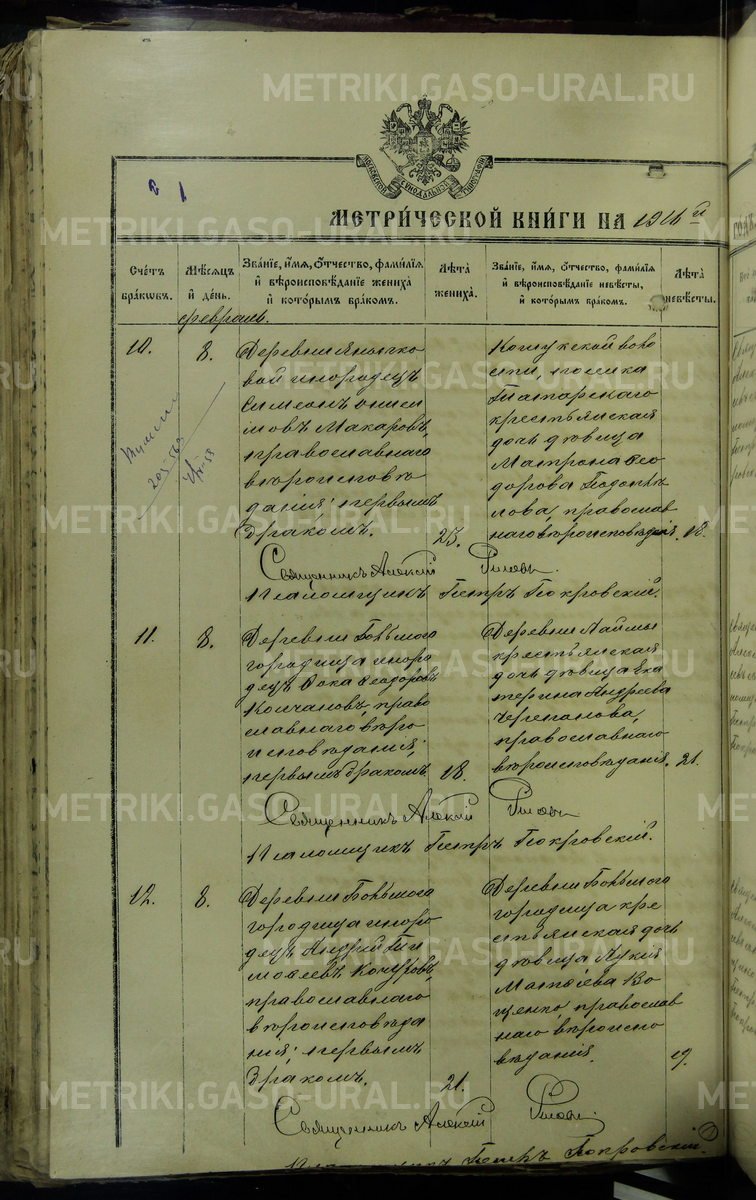 METRIKI.GASO-URAL.RU
МОСКОВСКОЙ СѴНОДАЛЬНОЙ ТИПОГРАФІИ
2 1
МЕТРИЧЕСКОЙ КНИГИ НА 1914 й
Счетъ браковъ.
Мѣсяцъ и день.
Званіе, имя, отчество, фамилія и вѣроисповѣданіе жениха и которымъ бракомъ.
Лѣта жениха.
Званіе, имя, отчество, фамилія и вѣроисповѣданіе невѣсты, и которымъ бракомъ.
Лѣта невѣсты.
февраль.
10.
8.
Деревни Янычко
вой инородецъ
СимеонъОниси
мовъ Макаровъ,
православнаго
вѣроисповѣ
данія; первымъ
бракомъ.
25.
волости
Татарскаго
крестьянская
дочь дѣвица
Матрона Ѳео
дорова
православ
наго вѣроисповѣданія.
18.
Священникъ Алексій
Псаломщикъ Петръ Покровскій.
11.
8.
Деревни Большого
городища иноро
децъ Ѳока Ѳеодоровъ
Колчановъ, право
славнаго вѣро
исповѣданія;
первымъ бракомъ.
18.
Деревни Лаймы
крестьянская
дочь дѣвица Ека
терина Андреева
Черепанова,
православнаго
вѣроисповѣданія.
21.
Священникъ Алексій
Псаломщикъ Петръ Покровскій.
12.
8.
Деревни Большого
городища иноро
децъ Андрей Ти
моѳеевъ Кочуровъ,
православнаго
вѣроисповѣда
нія; первымъ
бракомъ.
21.
Деревни Большого
городища кре
стьянская дочь
дѣвица Лукія
Матѳіева Во
щенко православ
наго вѣроиспо
вѣданія.
19.
Священникъ Алексій
Псаломщикъ Петръ Покровскій.